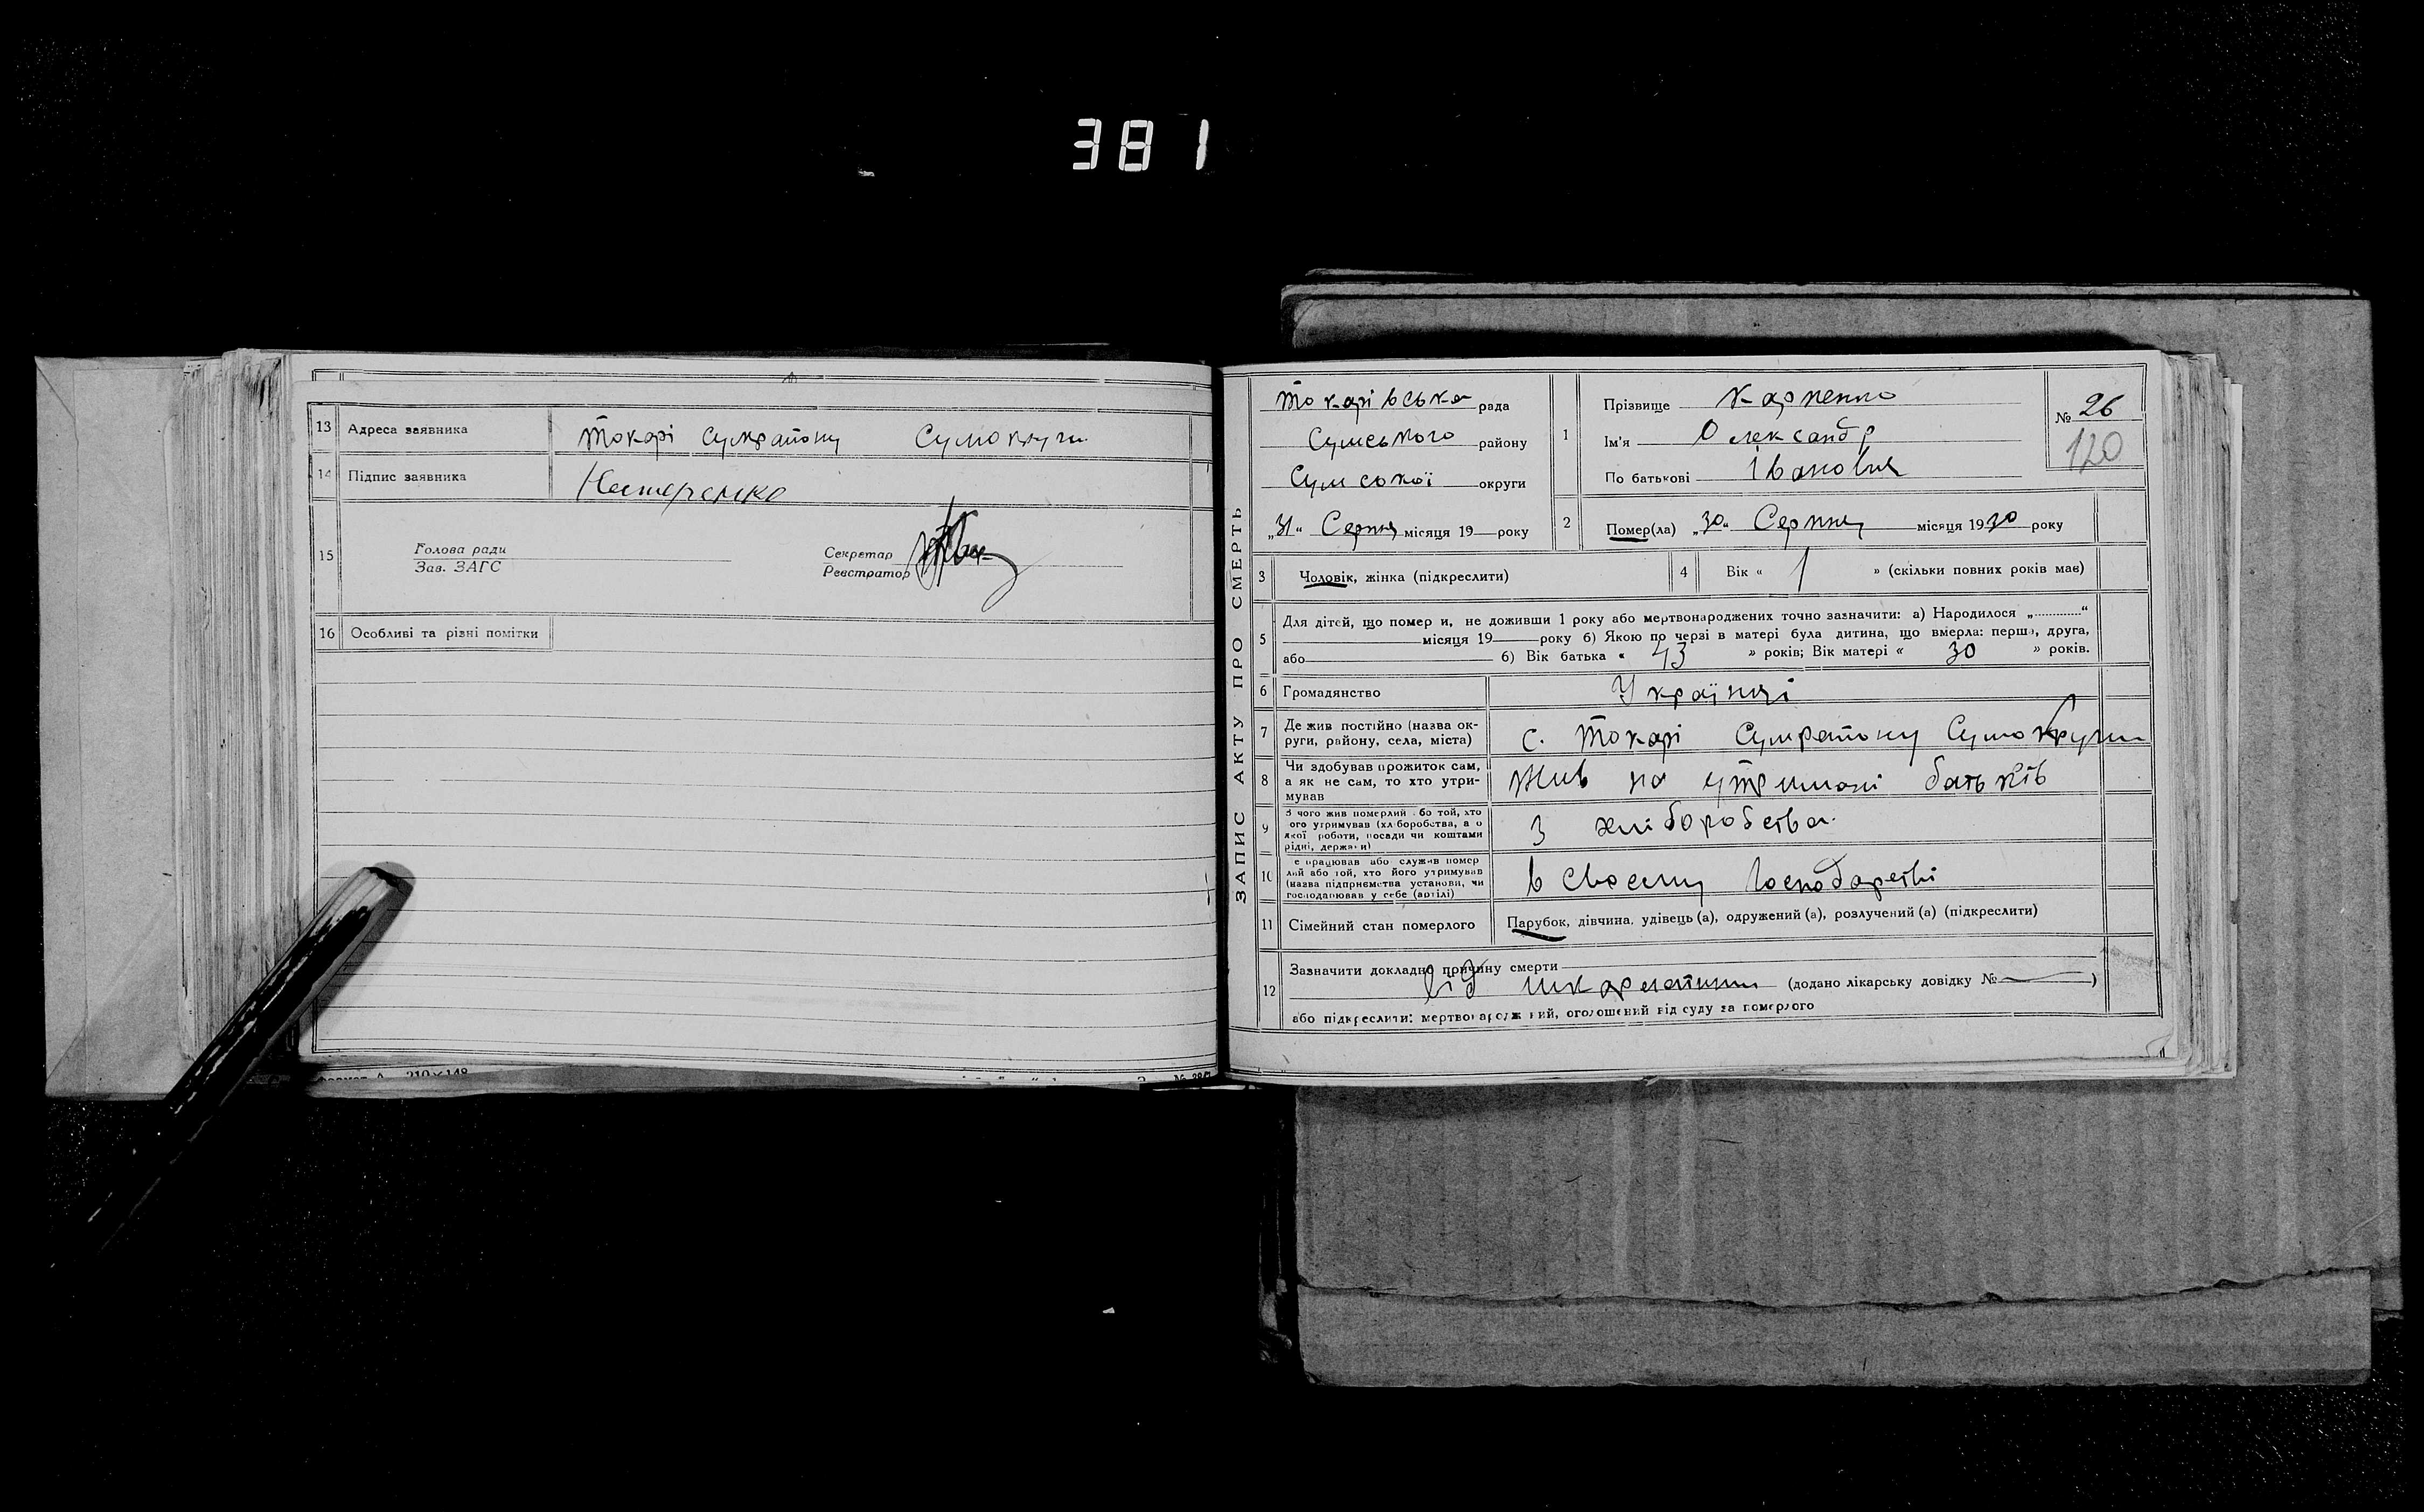 381
13 Адреса заявника Токарі Сумрайону Сумокруги
14 Підпис заявника Нестеренко
15 Голова ради
Зав. ЗАГС
Секретар
Реєстратор
16 Особливі та різні помітки
210×148
ЗАПИС АКТУ ПРО СМЕРТЬ
Токарівська рада
Сумського району
Сумської округи
„31“ Серпня місяця 19 року
1 Прізвище Карпенко
Ім'я Олександр
По батькові Іванович
№ 26
120
2 Помер(ла) „30“ Серпня місяця 1930 року
3 Чоловік, жінка (підкреслити)
4 Вік « 1 » (скільки повних років має)
5 Для дітей, що помер и, не доживши 1 року або мертвонароджених точно зазначити: а) Народилося „............“
місяця 19 року б) Якою по черзі в матері була дитина, що вмерла: перша, друга,
або б) Вік батька « 43 » років; Вік матері « 30 » років.
6 Громадянство Українці
7 Де жив постійно (назва ок-
руги, району, села, міста) с. Токарі Сумрайону Сумокруги
8 Чи здобував прожиток сам,
а як не сам, то хто утри-
мував Жив на утримані батьків
9 З чого жив померлий бо той, хто
ого утримував (хл боробства, а о
якої роботи, посади чи коштами
рідні, держа и) З хліборобства
10 е працював або служив помер
лий або той, хто його утримував
(назва підприємства установи, чи
господарював у себе (артілі) в своєму господарстві
11 Сімейний стан померлого Парубок, дівчина, удівець (а), одружений (а), розлучений (а) (підкреслити)
12 Зазначити докладно причину смерти
від шкарлатини (додано лікарську довідку № )
або підкреслити: мертвонародж ний, оголошений від суду за померлого